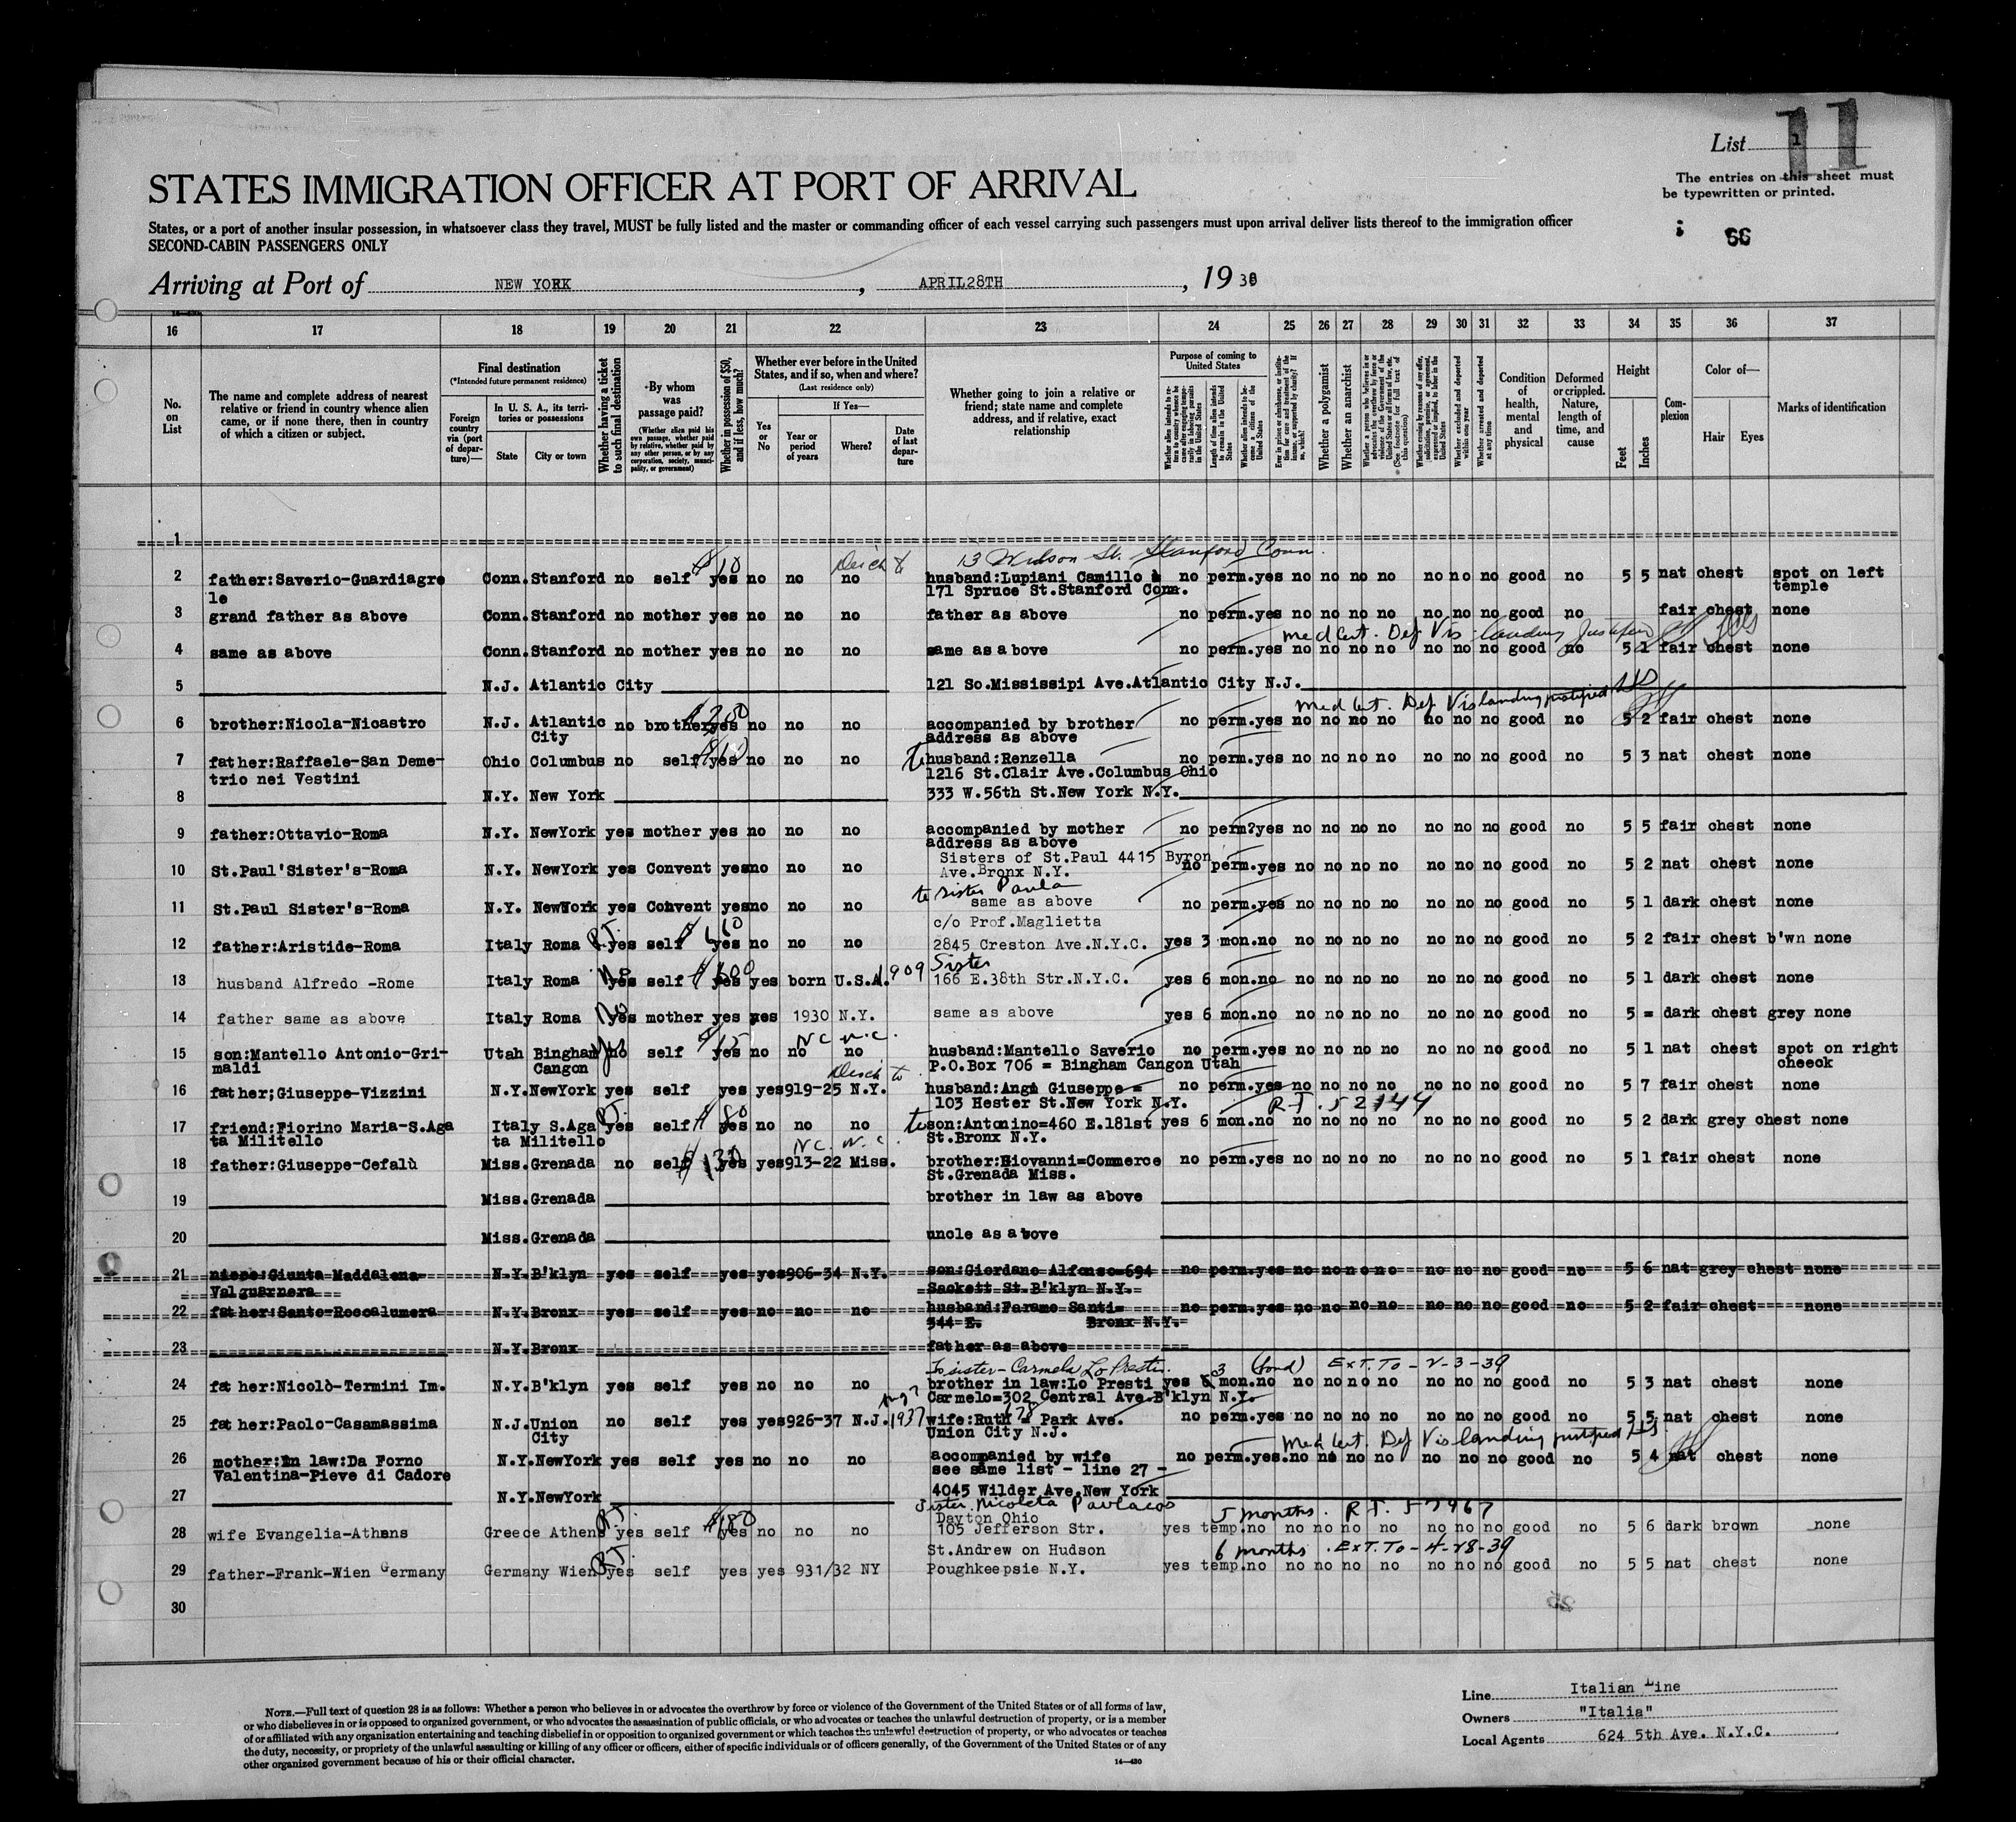 11
List 1
The entries on this sheet must
be typewritten or printed.
66
STATES IMMIGRATION OFFICER AT PORT OF ARRIVAL
States, or a port of another insular possession, in whatsoever class they travel, MUST be fully listed and the master or commanding officer of each vessel carrying such passengers must upon arrival deliver lists thereof to the immigration officer
SECOND-CABIN PASSENGERS ONLY
Arriving at Port of NEW YORK , APRIL28TH , 19 38
16 17 18 19 20 21 22 23 24 25 26 27 28 29 30 31 32 33 34 35 36 37
No. on List
The name and complete address of nearest relative or friend in country whence alien came, or if none there, then in country of which a citizen or subject.
Final destination
(*Intended future permanent residence)
Foreign country via (port of departure)—
In U. S. A., its territories or possessions
State City or town
Whether having a ticket to such final destination
By whom was passage paid?
(Whether alien paid his own passage, whether paid by relative, whether paid by any other person, or by any corporation, society, municipality, or government)
Whether in possession of $50, and if less, how much?
Whether ever before in the United States, and if so, when and where?
(Last residence only)
Yes or No
If Yes—
Year or period of years
Where?
Date of last departure
Whether going to join a relative or friend; state name and complete address, and if relative, exact relationship
Purpose of coming to United States
Whether a polygamist
Whether an anarchist
Condition of health, mental and physical
Deformed or crippled. Nature, length of time, and cause
Height
Feet Inches
Complexion
Color of—
Hair Eyes
Marks of identification
1
13 St. Stanford Conn.
2 father:Saverio-Guardiagre Conn.Stanford no self $10 yes no no no husband:Lupiani Camillo no perm.yes no no no no no no no good no 5 5 nat chest spot on left
le 171 Spruce St.Stanford Conn. temple
3 grand father as above Conn.Stanford no mother yes no no no father as above no perm.yes no no no no no no no good no fair chest none
Med Cert. Def Vis landing
4 same as above Conn.Stanford no mother yes no no no same as above no perm.yes no no no no no no no good no 5 1 fair chest none
5 N.J. Atlantic City 121 So.Mississipi Ave.Atlantic City N.J.
Med Cert. Def Vis landing justified
6 brother:Nicola-Nicastro N.J. Atlantic no brother yes no no no accompanied by brother no perm.yes no no no no no no no good no 5 2 fair chest none
City address as above
7 father:Raffaele-San Deme- Ohio Columbus no self yes no no no to husband:Renzella no perm.yes no no no no no no no good no 5 3 nat chest none
trio nei Vestini 1216 St.Clair Ave.Columbus Ohio
8 N.Y. New York 333 W.56th St.New York N.Y.
9 father:Ottavio-Roma N.Y. NewYork yes mother yes no no no accompanied by mother no perm?yes no no no no no no no good no 5 5 fair chest none
address as above
Sisters of St.Paul 4415 Byron
10 St.Paul'Sister's-Roma N.Y. NewYork yes Convent yesno no no Ave.Bronx N.Y. no perm.yes no no no no no no no good no 5 2 nat chest none
to sister Paula
11 St.Paul Sister's-Roma N.Y. NewYork yes Convent yesno no no same as above no perm.yes no no no no no no no good no 5 1 dark chest none
c/o Prof.Maglietta
12 father:Aristide-Roma Italy Roma R.T. yes self yes no no no 2845 Creston Ave.N.Y.C. yes 3 mon.no no no no no no no no good no 5 2 fair chest b'wn none
Sister
13 husband Alfredo -Rome Italy Roma yes self yes yes born U.S.A. 1909 166 E.38th Str.N.Y.C. yes 6 mon.no no no no no no no no good no 5 1 dark chest none
14 father same as above Italy Roma yes mother yes yes 1930 N.Y. same as above yes 6 mon.no no no no no no no no good no 5 = dark chest grey none
15 son:Mantello Antonio-Gri- Utah Bingham no self $15 yes no no no husband:Mantello Saverio no perm.yes no no no no no no no good no 5 1 nat chest spot on right
maldi Cangon P.O.Box 706 = Bingham Cangon Utah cheeck
16 father;Giuseppe-Vizzini N.Y.NewYork yes self yes yes919-25 N.Y. husband:Angi Giuseppe= no perm.yes no no no no no no no good no 5 7 fair chest none
103 Hester St.New York N.Y. R.T. 52744
17 friend:Fiorino Maria-S.Aga Italy S.Aga R.T. yes self $80 yes no no no to son:Antonino=460 E.181st yes 6 mon.no no no no no no no no good no 5 2 dark grey chest none
ta Militello ta Militello St.Bronx N.Y.
N.C. N.C.
18 father:Giuseppe-Cefalù Miss.Grenada no self $130 yes yes913-22 Miss. brother:Giovanni=Commerce no perm.yes no no no no no no no good no 5 1 fair chest none
St.Grenada Miss.
19 Miss.Grenada brother in law as above
20 Miss.Grenada uncle as above
21 niepe:Giunta Maddalena N.Y.B'klyn yes self yes yes906-34 N.Y. son:Giordano Alfonso=694 no perm.yes no no no no no no no good no 5 6 nat grey chest none
Valguarnera Sackett St.B'klyn N.Y.
22 father:Sante-Roccalumera N.Y.Bronx yes self yes no no no husband:Faramo Santi= no perm.yes no no no no no no no good no 5 2 fair chest none
344 E. Bronx N.Y.
23 N.Y.Bronx father as above
To sister - Carmela Lo Presti. 3 (bond) EXT. TO - 2-3-39
24 father:Nicolò-Termini Im. N.Y.B'klyn yes self yes no no no brother in law:Lo Presti yes mon.no no no no no no no no good no 5 3 nat chest none
Carmelo=302 Central Ave.B'klyn N.Y.
25 father:Paolo-Casamassima N.J.Union no self yes yes926-37 N.J. 1937 wife:Ruth = Park Ave. no perm.yes no no no no no no no good no 5 5 nat chest none
City Union City N.J.
Med Cert. Def Vis landing justified
26 mother:In law:Da Forno N.Y.NewYork yes self yes no no no accompanied by wife no perm.yes.no no no no no no no good no 5 4 nat chest none
Valentina-Pieve di Cadore see same list - line 27 -
27 N.Y.NewYork 4045 Wilder Ave.New York
Sister Nicoleta Pavlacos
Dayton Ohio 5 months. R.T. 57967
28 wife Evangelia-Athens Greece Athens R.T. yes self $180 yes no no no 105 Jefferson Str. yes temp.no no no no no no no no good no 5 6 dark brown none
St.Andrew on Hudson 6 months . EXT. TO - 4-28-39
29 father-Frank-Wien Germany Germany Wien R.T. yes self yes yes 931/32 NY Poughkeepsie N.Y. yes temp.no no no no no no no no good no 5 5 nat chest none
30
NOTE.—Full text of question 28 is as follows: Whether a person who believes in or advocates the overthrow by force or violence of the Government of the United States or of all forms of law,
or who disbelieves in or is opposed to organized government, or who advocates the assassination of public officials, or who advocates or teaches the unlawful destruction of property, or is a member
of or affiliated with any organization entertaining and teaching disbelief in or opposition to organized government or which teaches the unlawful destruction of property, or who advocates or teaches
the duty, necessity, or propriety of the unlawful assaulting or killing of any officer or officers, either of specific individuals or of officers generally, of the Government of the United States or of any
other organized government because of his or their official character.
14—430
Line Italian Line
Owners "Italia"
Local Agents 624 5th Ave. N.Y.C.